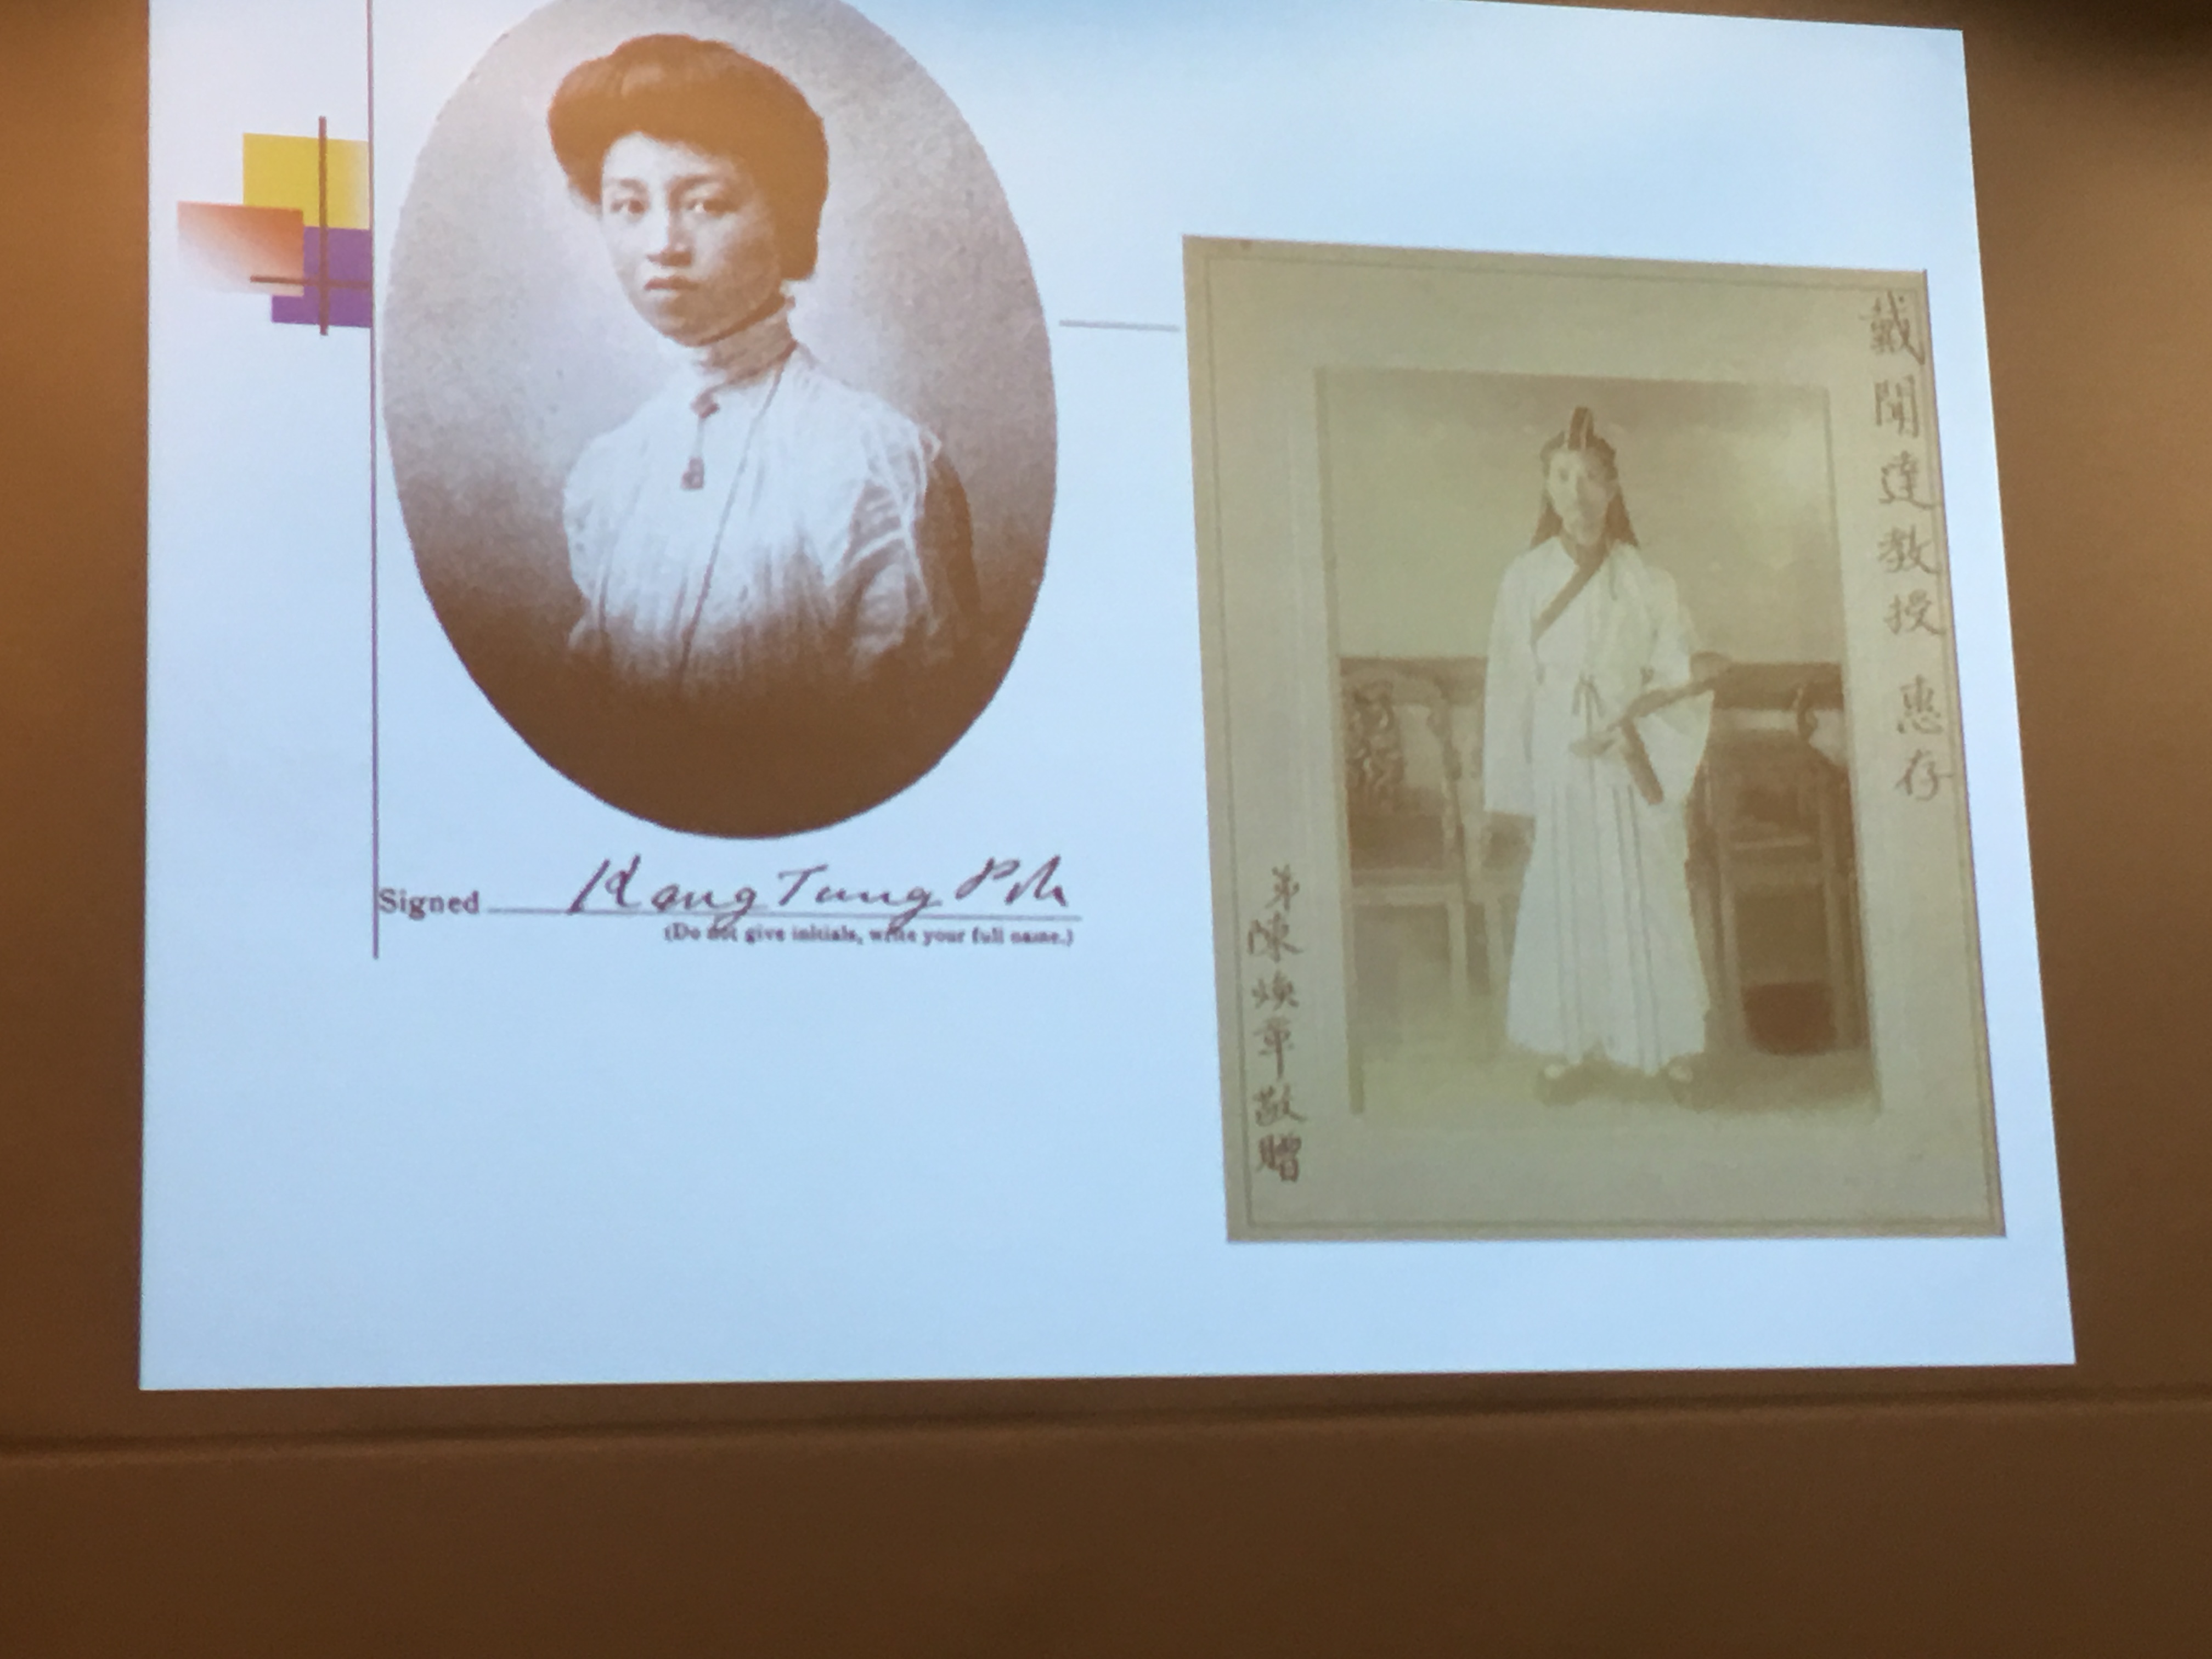 Signed Kang Tung Pih
(Do not give initials, write your full name.)
戴聞達教授 惠存
弟陳煥章敬贈